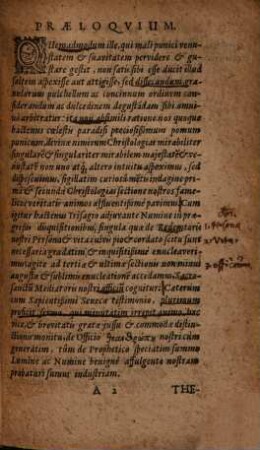 PRÆLOQVIUM.
QUemadmodum ille, qui mali punici venu-
statem & suavitatem pervidere & gu-
stare gestit, non satis sibi esse ducit illud
saltem aspexisse aut attigisse, sed dissecandum, gra-
nulorum pulchellum ac concinnum ordinem con-
siderandum ac dulcedinem degustandam sibi omni-
nò arbitratur: ita non absimili ratione nos quoque
hactenus cœlestis paradisi preciosissimum pomum
punicum, divinæ nimirum Christologiæ mirabiliter
singularē & singulariter mirabilem majestatē & ve-
nustatē non uno atq́, altero intuitu aspeximus, sed
deposcuimus, sigillatim cariorā mētis indagine pri-
mæ & secundæ Christologiæ sectione nostros fame-
licos veritatis animos affluentissimè pavimus. Cum
igitur hactenus Trisagio adjuvante Numine in præ-
gressis disquisitionibus, singula quæ de Redemtoris
nostri Persona & vita cuivis pio & cordato scitu sunt
necessaria gradatim & inquisitissimè enucleaveri-
mus, ad tertiæ & ultimæ sectionis nominum
augustū & sublimē enucleationē accedamus, Sacro-
sancti Mediatoris nostri officii cogitur. Cæterum
cum Sapientissimi Senecæ testimonio, plurimum
proficit sermo, qui minutatim irrepit animo, lu-
cis & brevitatis gratâ jussu & commodâ distin-
ctione monito, de Officio nostri cum
generatim, tùm de Prophetico speciatim summo
Lumine ac Numine benignè affulgente nostram
probaturi sumus industriam.
A 2 THE-
1. Persona
2. Vita
3. officium